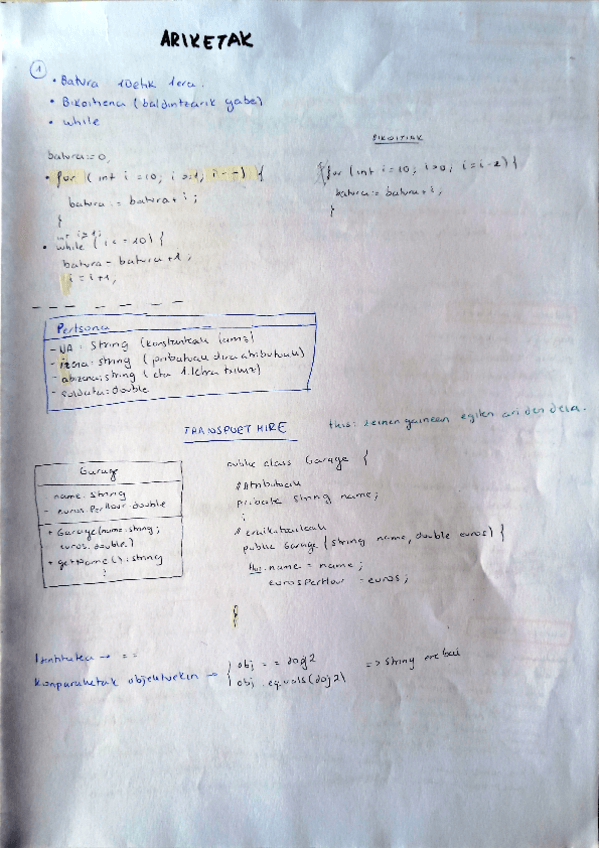 ARIKETAK
1
• Batura 10etik 1era.
• Bikoitiena (baldintzarik gabe)
• while
batura:=0,
• for (int i=10; i>1; i--) {
batura := batura + i;
}
int i=1;
• while (i<=10) {
batura = batura + 1;
i = i+1;
BIKOITIAK
for (int i=10; i>0; i=i-2) {
batura := batura + i;
}
Pertsona
- NA: String (konstanteak
- izena: string (pribatuak dira atributuak)
- abizena: string (eta 1. letra
- soldata: double
TRANSPORT HIRE
this: zeinen gainean egiten ari den dena.
Garage
- name: string
- eurosPerHour: double
+ Garage(name: string;
euros: double)
+ getName(): string
:
public class Garage {
// Atributuak
private String name;
:
// eraikitzaileak
public Garage (String name, double euros) {
this.name = name;
eurosPerHour = euros;
}
→ ==
Konparaketak objektuekin →
{ obj == obj2
obj.equals(obj2)
=> String ere bai